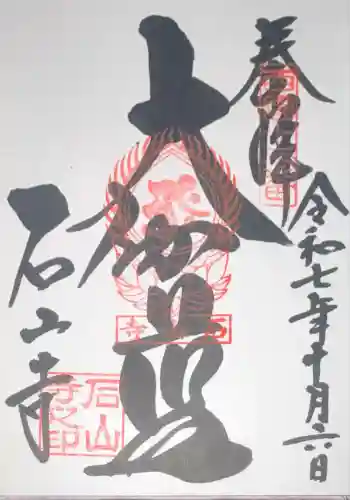 奉拝
令和七年十月六日
大伽藍
石山寺
石山
寺之印